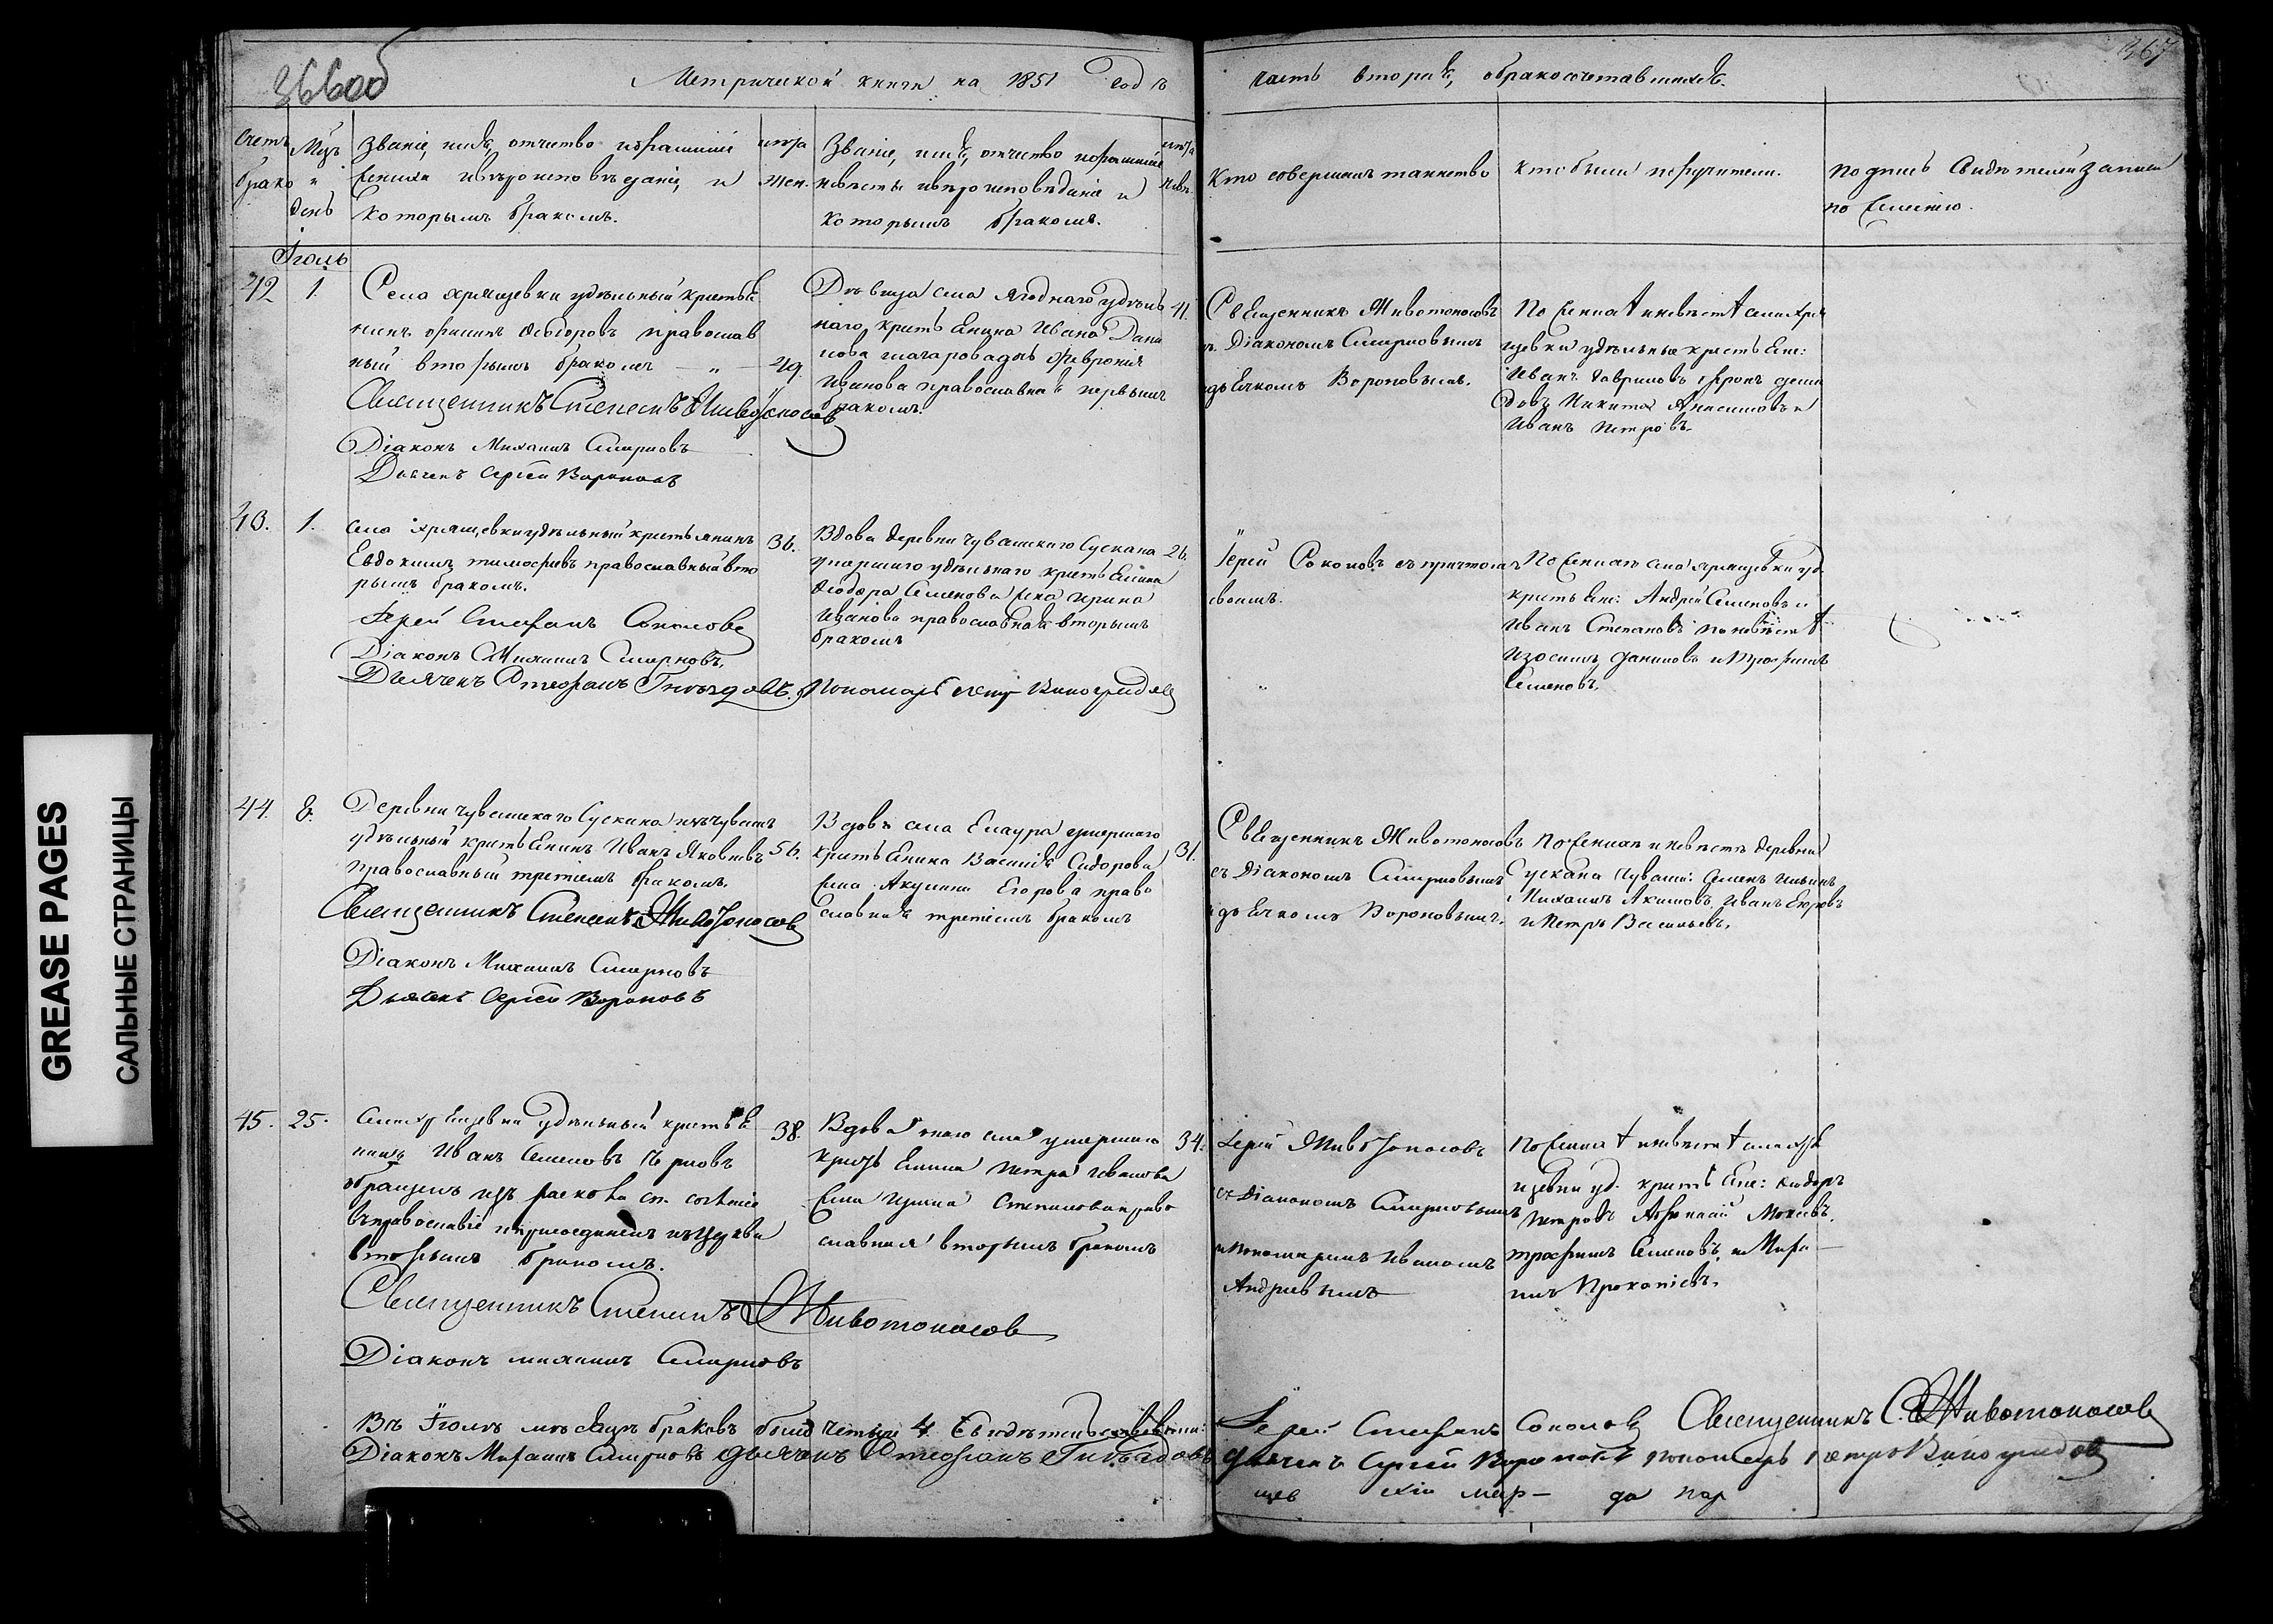 366об
Метрической книги на 1851 годъ
часть вторая, о бракосочетавшихся.
367
Счетъ
брако
Мцъ
и
день
Званіе, имя, отчество и фамилія
жениха и вѣроисповѣданіе, и
которымъ бракомъ.
лѣта
жен.
Званіе, имя, отчество и фамилія
невѣсты и вѣроисповѣданіе и
которымъ бракомъ.
лѣта
невѣ.
Кто совершилъ таинство
кто были поручители.
подпись Свидѣтелей записи
по желанію.
Іюль
42
1.
Села Хрящевки удѣльный крестья
нинъ Филипъ Феодоровъ православ
ный вторымъ бракомъ — „ —
49.
Дѣвица села Ягоднаго удѣль
наго крестьянина Ивана Дани
лова дочь Февронія
Иванова православная первымъ
бракомъ.
41.
Священникъ Животоносовъ
съ Діакономъ Смирновымъ
и дьячкомъ Вороновымъ.
По женихѣ и невѣстѣ села Хря
щевки удѣльные крестьяне:
Иванъ Гавриловъ
Никита Анисимовъ и
Иванъ Петровъ.
Священникъ Стефанъ Животоносовъ
Діаконъ Михаилъ Смирновъ
Дьячекъ Сергей Вороновъ
43.
1.
Села Хрящевки удѣльный крестьянинъ
Евдокимъ Тимофеевъ православный вто
рымъ бракомъ.
36.
Вдова деревни Чувашскаго Сускана
умершаго удѣльнаго крестьянина
Феодора Семенова жена Ирина
Иванова православная вторымъ
бракомъ
26.
Іерей Соколовъ съ причтомъ
своимъ.
По женихѣ села Хрящевки уд.
крестьяне: Андрей Семеновъ и
Иванъ Степановъ по невѣстѣ
Изосимъ Даниловъ и Трофимъ
Семеновъ.
Іерей Стефанъ Соколовъ
Діаконъ Михаилъ Смирновъ,
Дьячекъ Стефанъ Гнѣздовъ. Пономарь Петръ Виноградовъ
44.
8.
Деревни Чувашскаго Сускана изъ чувашъ
удѣльный крестьянинъ Иванъ Яковлевъ
православный третіимъ бракомъ.
56.
Вдова села Елаура умершаго
крестьянина Василія Сидорова
жена Акулина Егорова право
славная третіимъ бракомъ
31.
Священникъ Животоносовъ
съ Діакономъ Смирновымъ
и дьячкомъ Вороновымъ.
По женихѣ и невѣстѣ деревни
Сускана чуваши: Семенъ Ильинъ
Михаилъ Акимовъ, Иванъ Егоровъ
и Петръ Васильевъ.
Священникъ Стефанъ Животоносовъ
Діаконъ Михаилъ Смирновъ
Дьячекъ Сергей Вороновъ
45.
25.
Села Хрящевки удѣльный крестья
нинъ Иванъ Семеновъ Черновъ
обращенъ изъ раскола
въ православіе и присоединенъ къ Церкви
вторымъ бракомъ.
38.
Вдова того села умершаго
крестьянина Петра Иванова
жена Ирина Степанова право
славная вторымъ бракомъ
34.
Іерей Животоносовъ
съ Діакономъ Смирновымъ
и пономаремъ Иваномъ
Андреевымъ
По женихѣ и невѣстѣ села Хря
щевки уд. крестьяне: Феодоръ
Петровъ Афанасій Мокеевъ,
Трофимъ Семеновъ, и Миха
илъ Прокопіевъ.
Священникъ Стефанъ Животоносовъ
Діаконъ Михаилъ Смирновъ
Въ Іюлѣ мѣсяцѣ браковъ было четыре 4.
Іерей Стефанъ Соколовъ Священникъ С. Животоносовъ
Діаконъ Михаилъ Смирновъ дьячекъ Стефанъ Гнѣздовъ
дьячекъ Сергей Вороновъ пономарь Петръ Виноградовъ
GREASE PAGES
САЛЬНЫЕ СТРАНИЦЫ